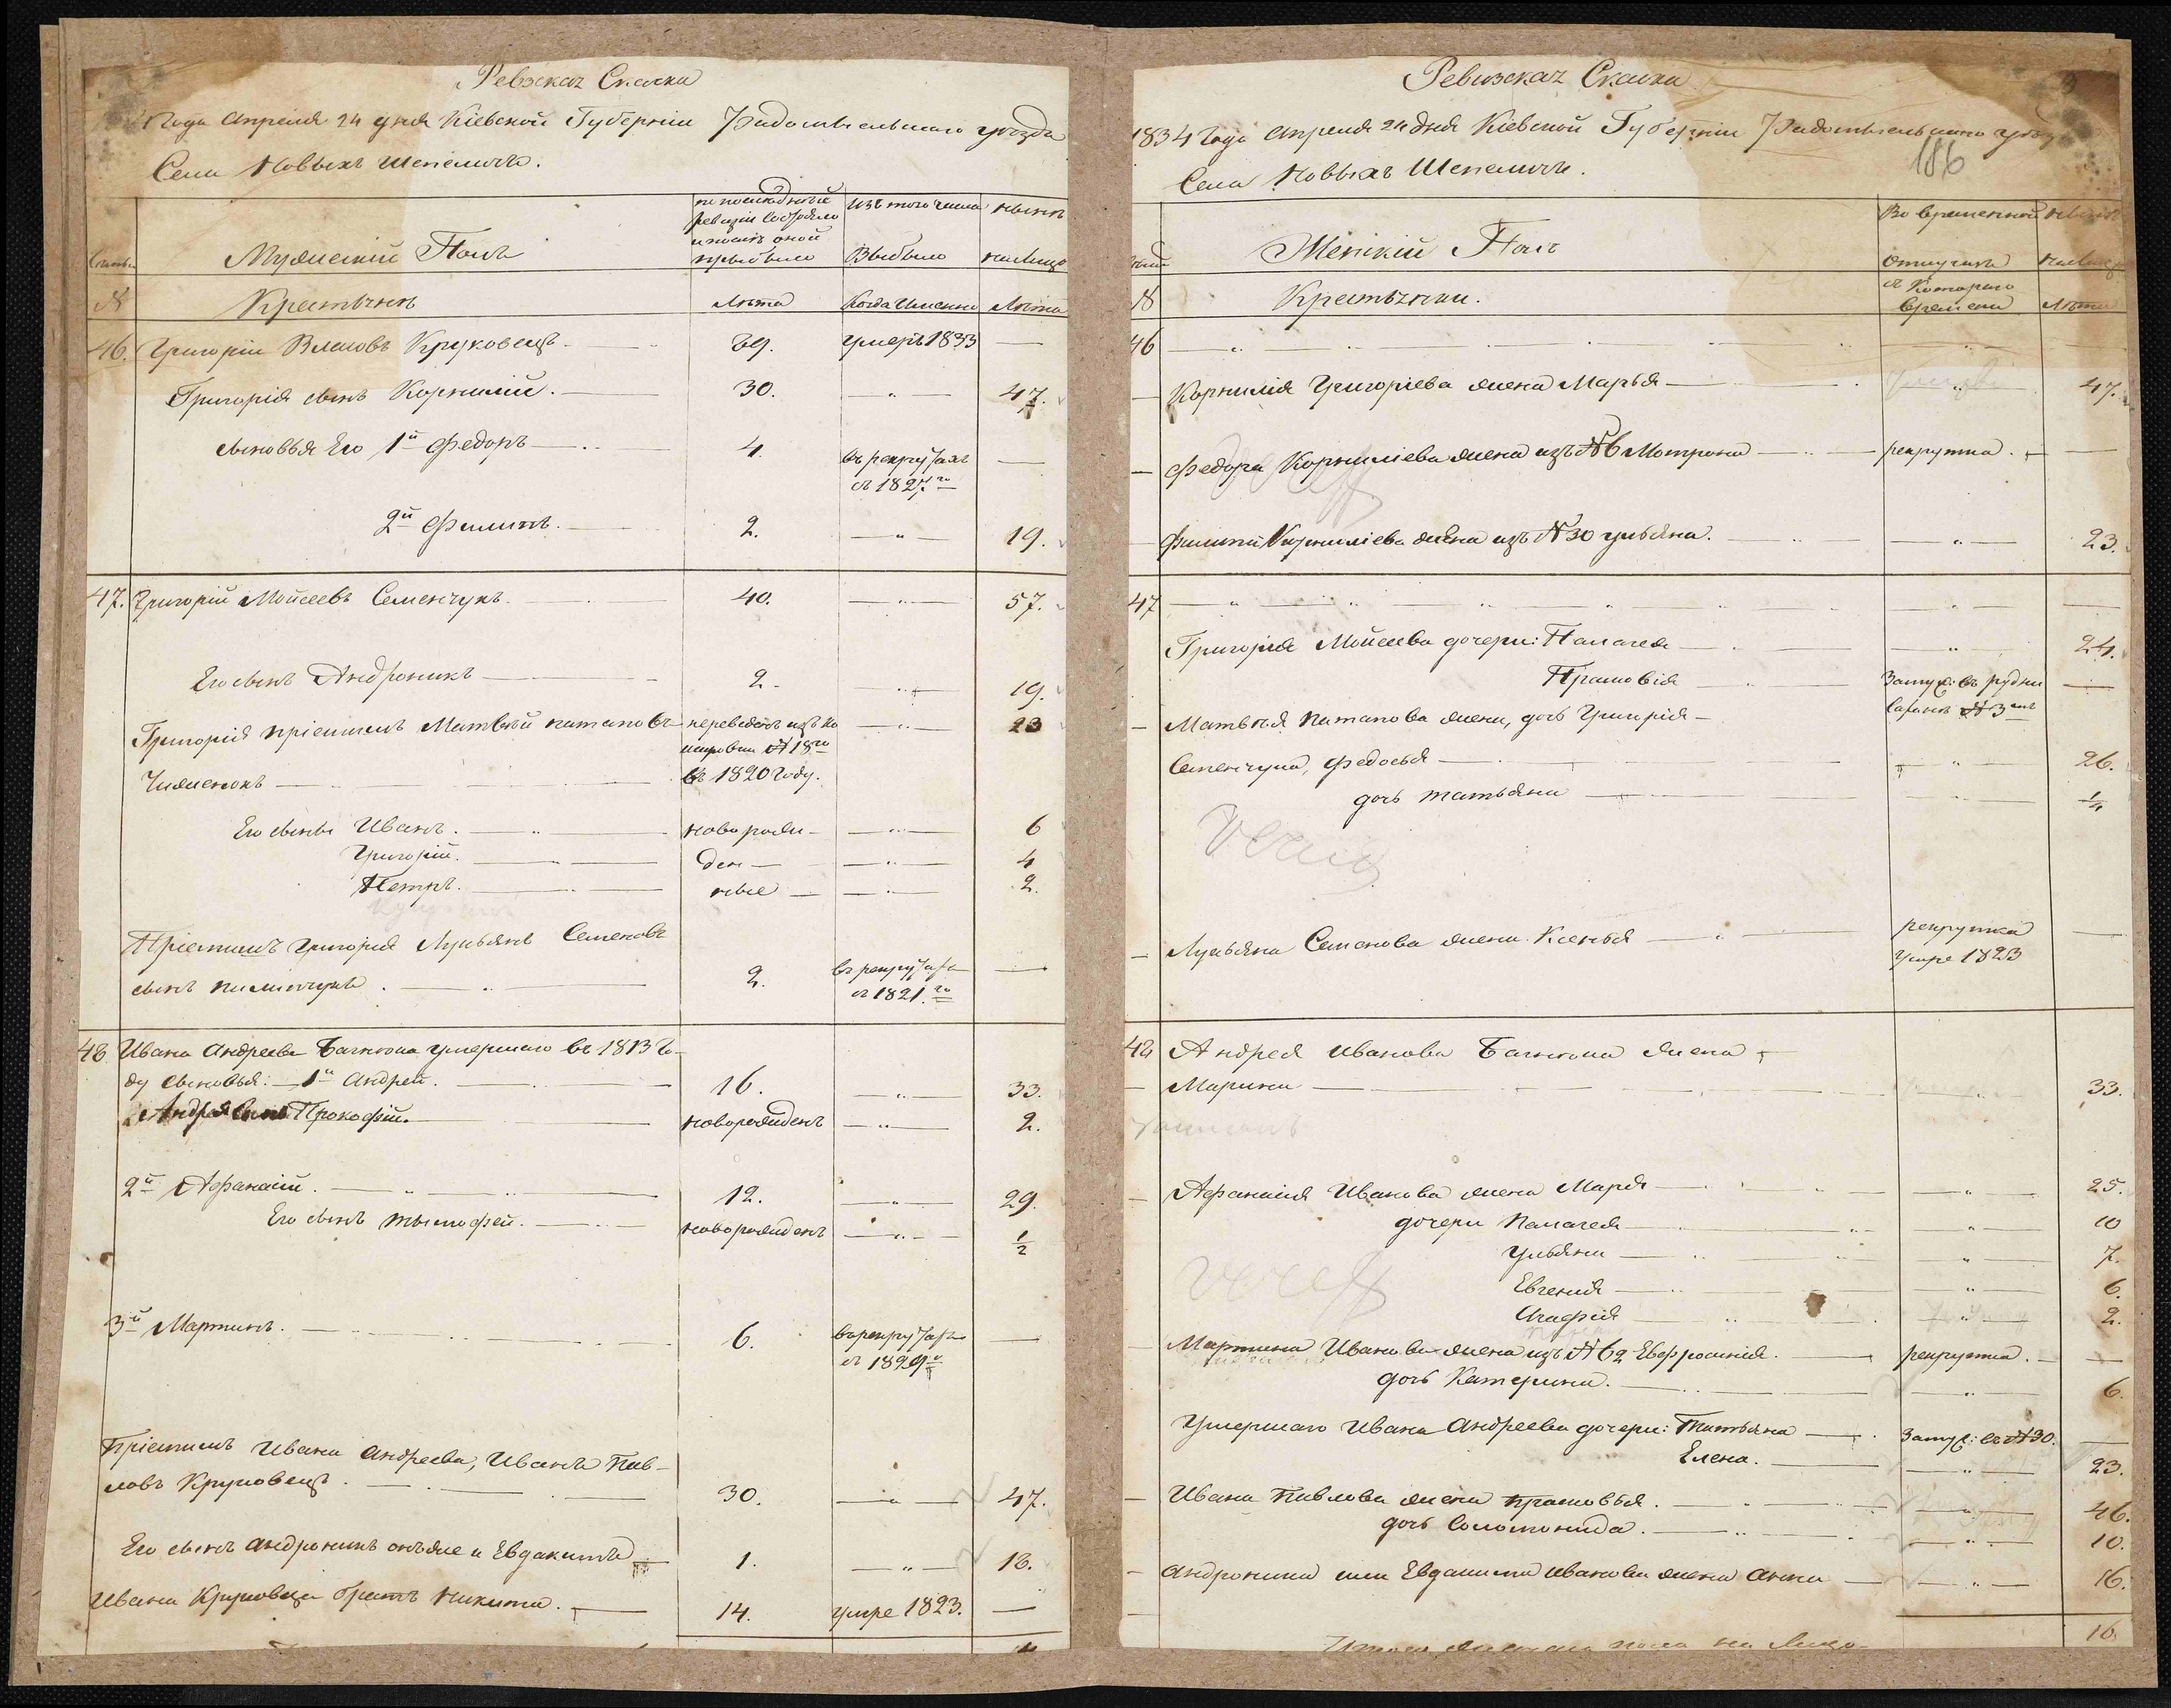 Ревзская Сказка
Года Апреля 24 дня Кіевской Губерніи Радомысльскаго уезда
Села Новыхъ Шепеличъ.
Мужескій Полъ
по последней ревизіи состояло и после оной прибыло
Изъ того числа Выбыло
ныне на лицо
№
Крестьяне
Лета
Когда Именно
Лета
46. Григорій Власовъ Круковецъ. 69. умеръ 1833 —
Григорія сынъ Корнилій. 30. — 47.
сыновья Его 1й Федоръ 4. въ рекрутахъ —
съ 1827го
2й Филипъ. 2. — 19.
47. Григорій Мойсеевъ Семенчукъ. 40. — 57.
Его сынъ Андроникъ 2. — 19.
Григорія пріемышъ Матвей потаповъ переведенъ изъ — 23
№ 18го
Чижменокъ въ 1820 году.
Его сыны Иванъ. новорож- — 6
Григорій. ден- — 4
Петръ. ные — 2.
Пріемышъ Григорія Лукьянъ Семеновъ
сынъ 2. въ рекрутахъ —
съ 1821.го
48 Ивана Андреева умершаго въ 1813 го-
ду сыновья: 1й Андрей. 16. — 33.
Андрея Сынъ Прокофій. новорожденъ — 2.
2й Афанасій. 12. — 29.
Его сынъ тымофей. новорожденъ — 1/2
3й Мартинъ. 6. въ рекрутахъ —
съ 1829го
Пріемышъ Ивана Андреева, Иванъ Пав-
ловъ Круковецъ. 30. — 47.
Его сынъ Андроникъ онъ же и Евдакимъ 1. — 18.
Ивана Круковца братъ Никита. 14. умре 1823. —
Ревизская Сказка
1834 Года Апреля 24 дня Кіевской Губерніи Радомысльскаго уезду
186
Села Новыхъ Шепеличъ.
Женскій Полъ
Во временной отлучке
ныне на лицо
№
Крестьянки.
съ Котораго времени
Лета
46
Корнилія Григоріева жена Марья — 47.
Федора Корниліева жена изъ № 6 Мотрона рекрутка. —
Филипа Корниліева жена изъ № 30 ульяна. — 23.
47
Григорія Мойсеева дочери: Палагея — 24.
Прасковія Замуж: въ рудни —
Матвея Потапова жена, дочь Григорія —
Семенчука, Федосья — 26.
дочь татьяна — 1/4
Лукьяна Семенова жена Ксенья рекрутка —
Умре 1823
48 Андрея Иванова жена
Марина — 33.
Афанасія Иванова жена Марья — 25.
дочери Палагея — 10
Ульяна — 7.
Евгенія — 6.
Агафія — 2.
Мартина Иванова жена изъ № 62 Евфросинія. рекрутка. —
дочь Катерина. — 6.
Умершаго Ивана Андреева дочери: Татьяна Замуж: въ № 30. —
Елена. — 23.
Ивана Павлова жена прасковья. — 46.
дочь Соломонида. — 10.
Андроника или Евдакима Иванова жена Анна — 16.
16.
Итого женска пола на Лицо